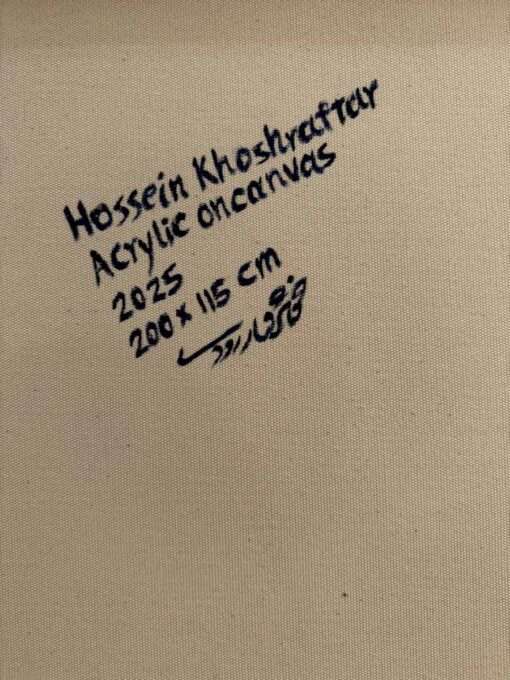 Hossein Khoshraftar
Acrylic on canvas
2025
200 x 115 cm